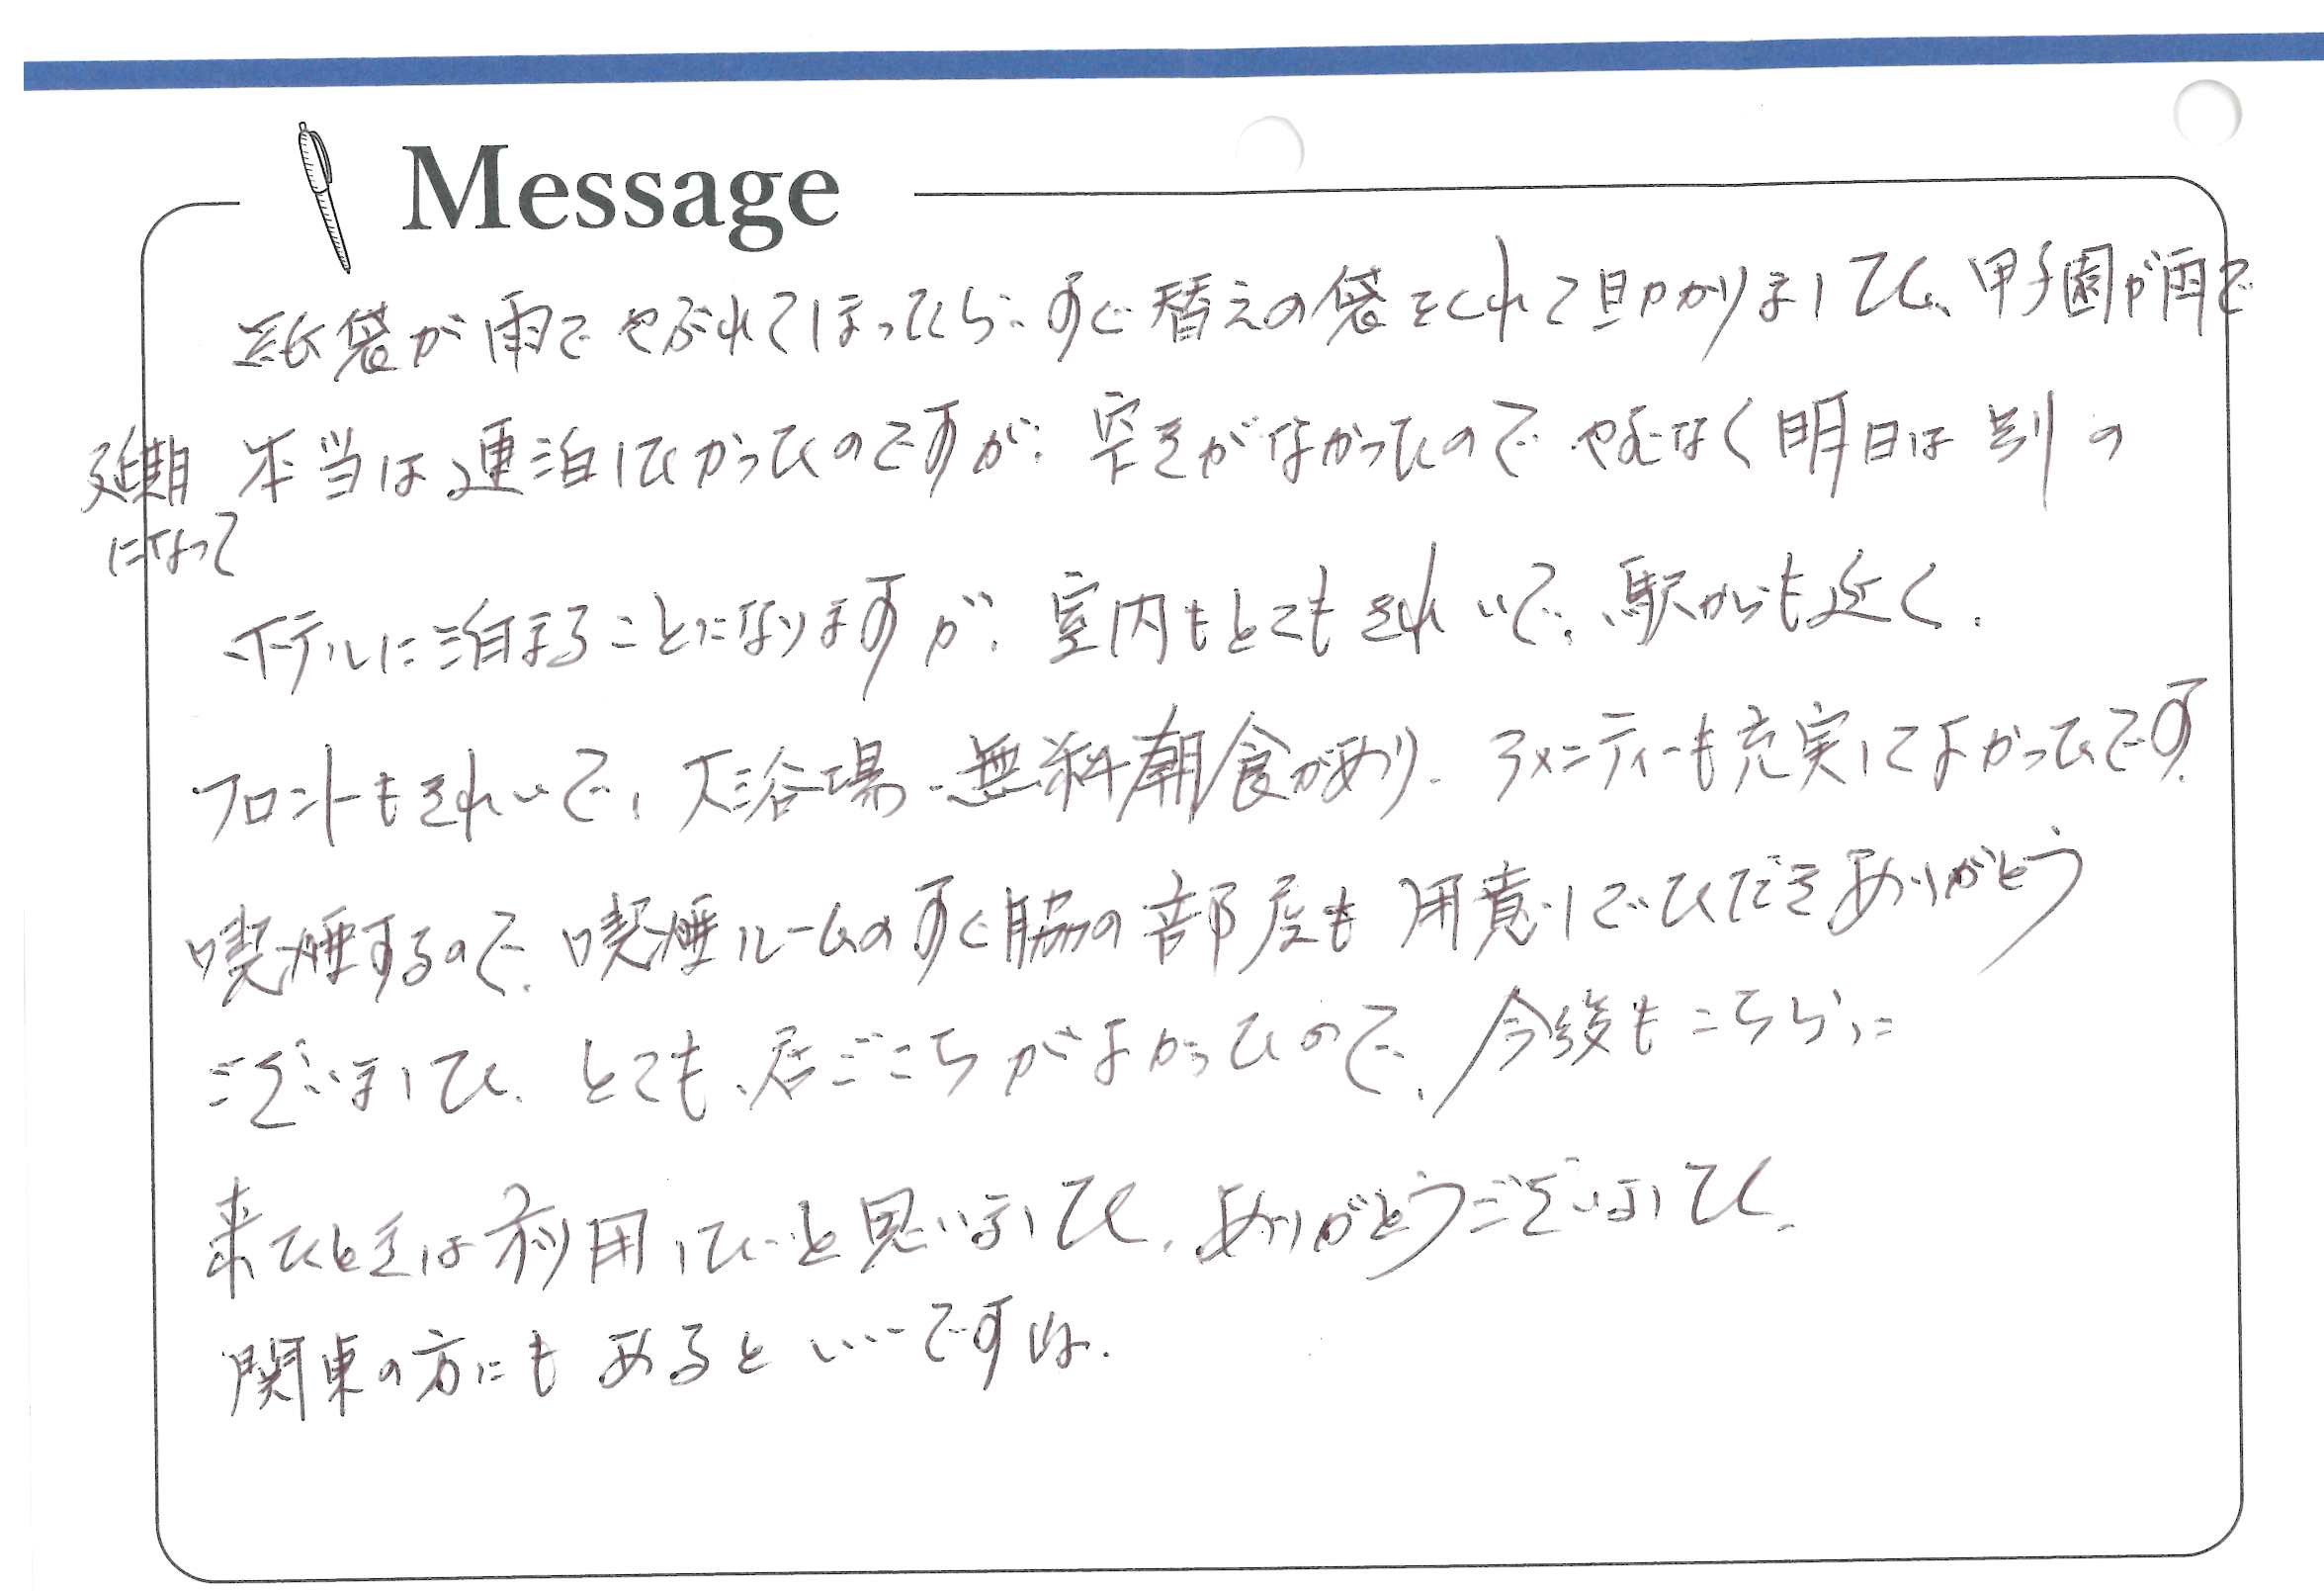 Message
紙袋が雨でやぶれてしまってたら、すぐ替えの袋をくれて助かりました、甲子園が雨で
延期になって
本当は連泊したかったのですが、空きがなかったので やむなく明日は 別の
ホテルに泊まることになりますが、室内もとてもきれいで、駅からも近く、
フロントもきれいで、大浴場、無料朝食があり、アメニティーも充実してよかったです。
喫煙するので、喫煙ルームのすぐ脇の部屋も用意していただきありがとう
ございました。とても、居ごこちがよかったので、今後もこちらに
来たときは利用したいと思いました。ありがとうございました。
関東の方にも あると いいですね。